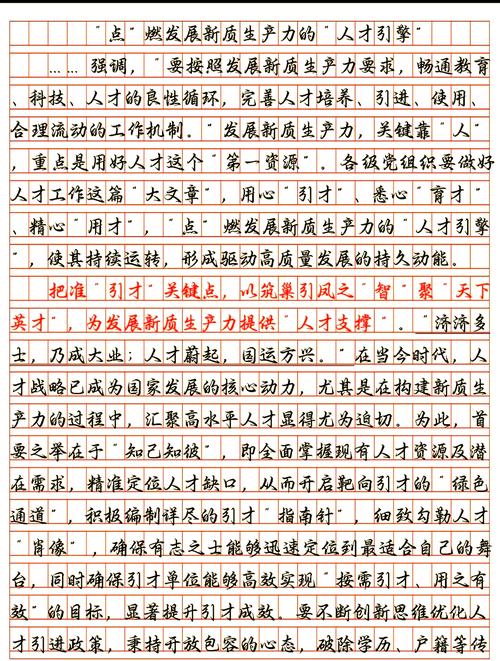 “点”燃发展新质生产力的“人才引擎”
……强调，“要按照发展新质生产力要求，畅通教育
、科技、人才的良性循环，完善人才培养、引进、使用、
合理流动的工作机制。”发展新质生产力，关键靠“人”
，重点是用好人才这个“第一资源”。各级党组织要做好
人才工作这篇“大文章”，用心“引才”、悉心“育才”
、精心“用才”，“点”燃发展新质生产力的“人才引擎
”，使其持续运转，形成驱动高质量发展的持久动能。
把准“引才”关键点，以筑巢引凤之“智”聚“天下
英才”，为发展新质生产力提供“人才支撑”。“济济多
士，乃成大业；人才蔚起，国运方兴。”在当今时代，人
才战略已成为国家发展的核心动力，尤其是在构建新质生
产力的过程中，汇聚高水平人才显得尤为迫切。为此，首
要之举在于“知己知彼”，即全面掌握现有人才资源及潜
在需求，精准定位人才缺口，从而开启靶向引才的“绿色
通道”，积极编制详尽的引才“指南针”，细致勾勒人才
“肖像”，确保有志之士能够迅速定位到最适合自己的舞
台，同时确保引才单位能够高效实现“按需引才、用之有
效”的目标，显著提升引才成效。要不断创新思维优化人
才引进政策，秉持开放包容的心态，破除学历、户籍等传